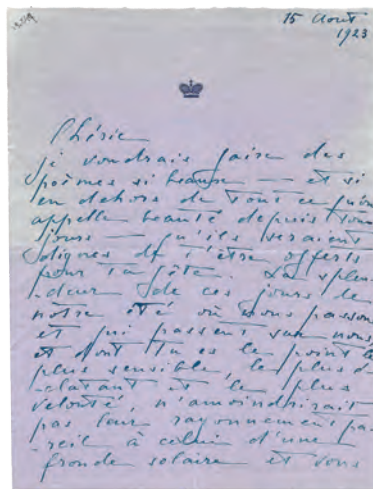 15 Aout
1923
Chérie
je voudrais faire des
poèmes si beaux — et si
en dehors de tout ce qu'on
appelle beauté depuis tou
jours — qu'ils seraient
dignes de t'être offerts
pour ta fête. La splen
-deur de ces jours de
notre été où nous passons
et qui passent sur nous,
et dont tu es le point le
plus sensible, le plus é
-clatant et le plus
velouté, n'amoindrirait
pas leur rayonnement pa
-reil à celui d'une
fronde solaire et vous